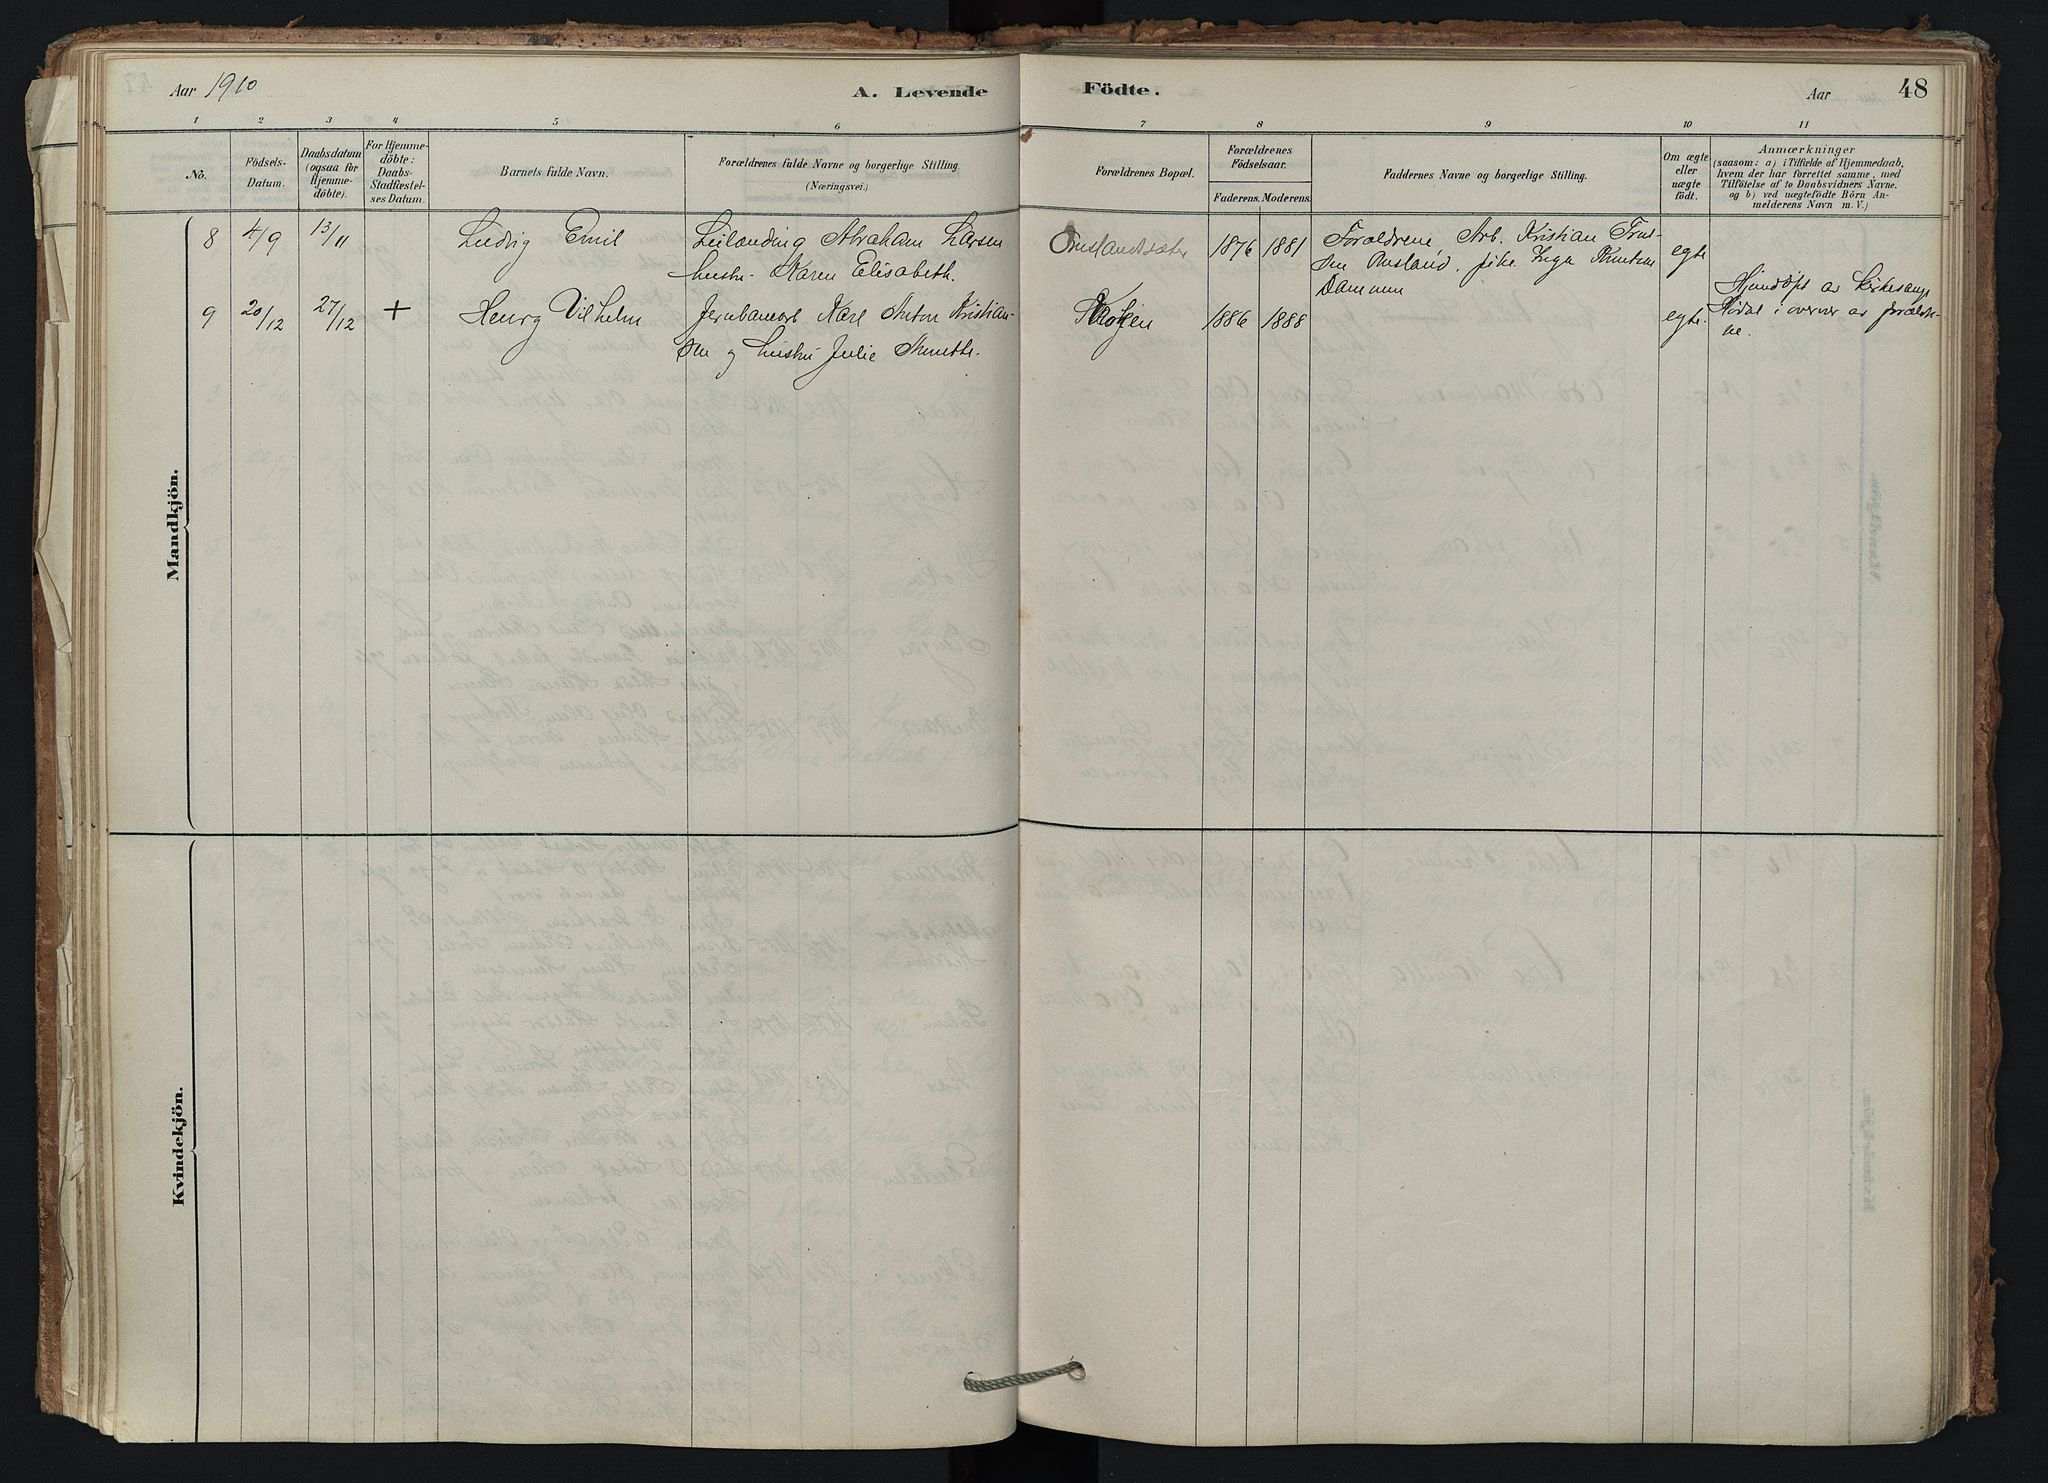 Aar 1910 A. Levende Födte. Aar 48
1 2 3 4 5 6 7 8 9 10 11
No.
Födsels-
Datum.
Daabsdatum
(ogsaa for
Hjemme-
döbte).
For Hjemme-
döbte:
Daabs-
Stadfæstel-
ses Datum.
Barnets fulde Navn.
Forældrenes fulde Navne og borgerlige Stilling.
(Næringsvei.)
Forældrenes Bopæl.
Forældrenes
Födselsaar.
Faderens. Moderens.
Faddernes Navne og borgerlige Stilling.
Om ægte
eller
uægte
födt.
Anmærkninger
(saasom: a) i Tilfælde af Hjemmedaab,
hvem der har forrettet samme, med
Tilföielse af to Daabsvidners Navne,
og b) ved uægtefödte Börn An-
melderens Navn m. V.)
Mandkjön.
8 4/9 13/11 Ludvig Emil
Leilænding Abraham Larsen
hustr. Karen Elisabeth.
1876 1881
Forældrene, Arb. Kristian
Rusland, pike Inga Knutsen
Dammen
egte
9 20/12 27/12 + Henry Vilhelm
Jernbanearb Karl Anton Kristian-
sen og hustru Julie
Kroken 1886 1888
egte.
Hjemdöpt av Kirkesanger
i overvær av foreldre-
ne.
Kvindekjön.